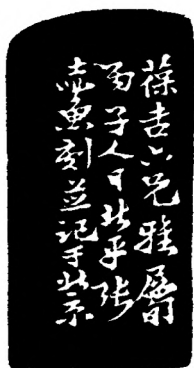 葆吉六兄雅屬
丙子人日北平張
志魚刻並記于北京